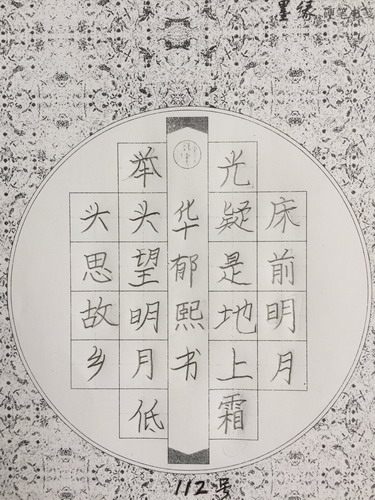 墨缘硬笔书
床前明月
光疑是地上霜
举头望明月低
头思故乡
华郁熙书
112号